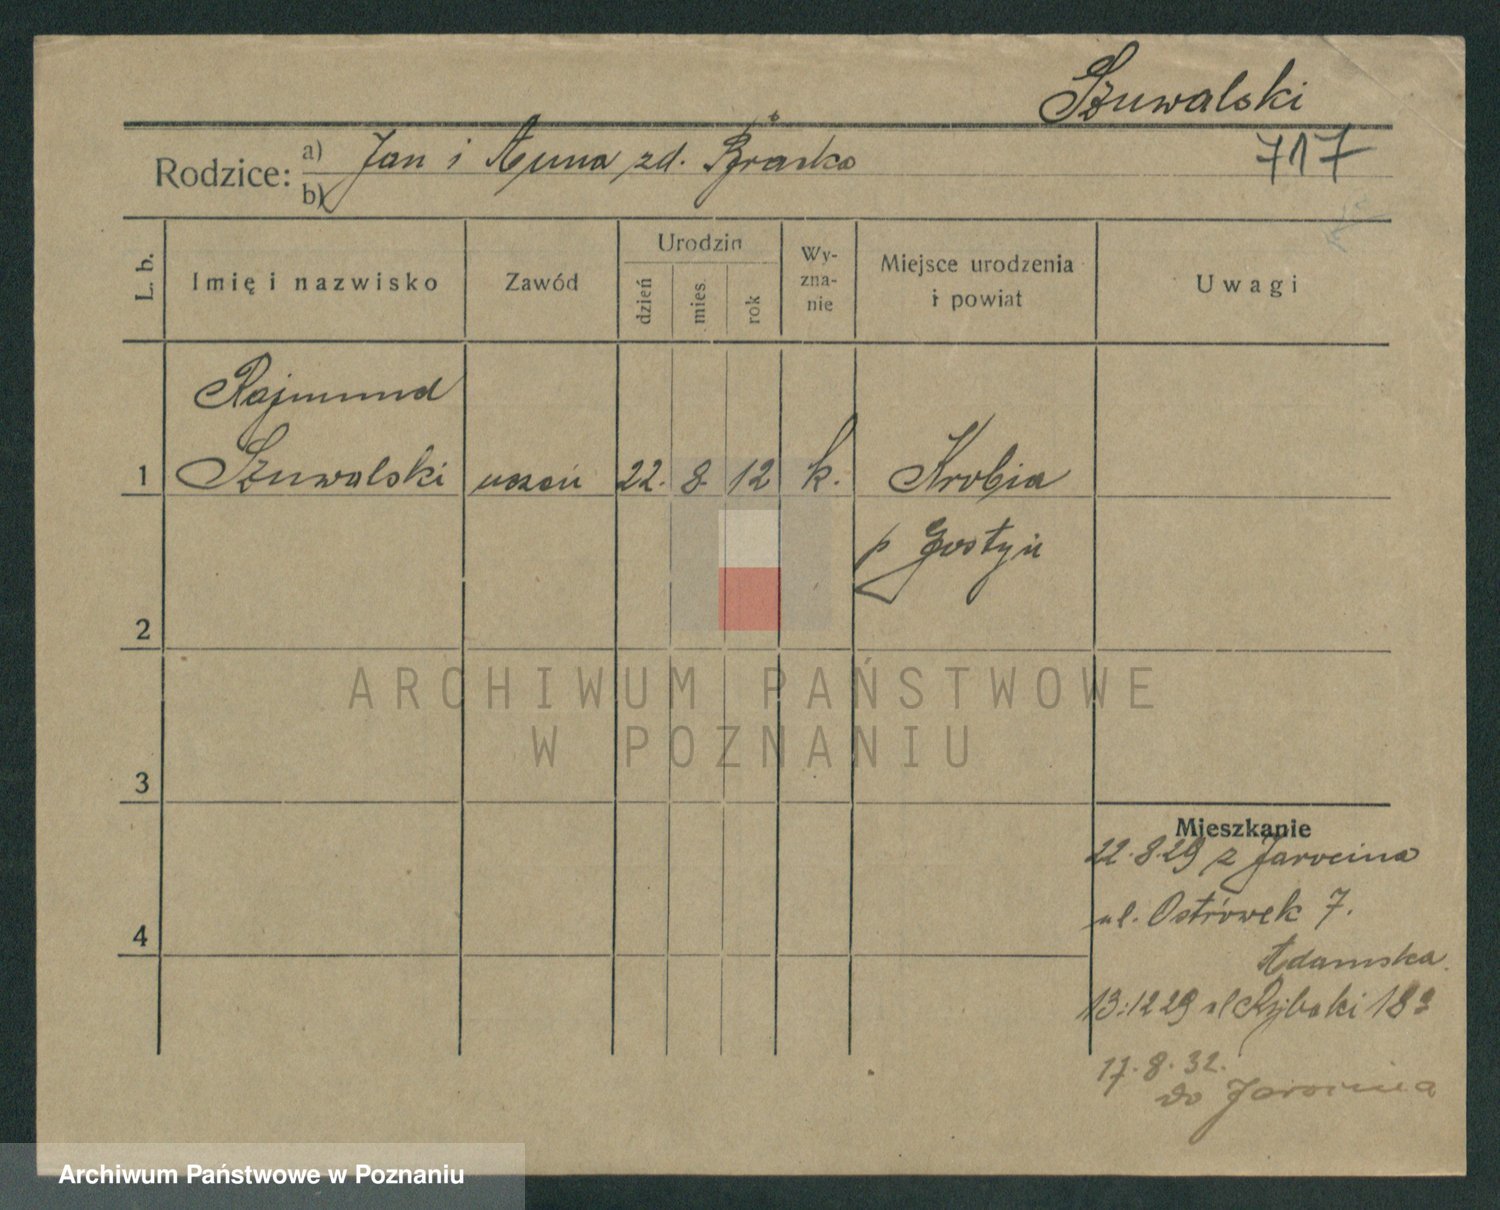 Szuwalski
Rodzice: a) Jan i Anna zd.
b)
717
L. b.
Imię i nazwisko
Zawód
Urodzin
dzień
mies.
rok
Wy-
zna-
nie
Miejsce urodzenia
i powiat
Uwagi
Rajmund
1 Szuwalski uczeń 22. 8. 12 k. Krobia
p Gostyń
2
ARCHIWUM PAŃSTWOWE
W POZNANIU
3
Mieszkanie
22.8.29 z Jarocina
ul. Ostrówek 7.
4
Adamska
13.12 29 ul Rybaki 18
17. 8. 32.
do Jarocina
Archiwum Państwowe w Poznaniu